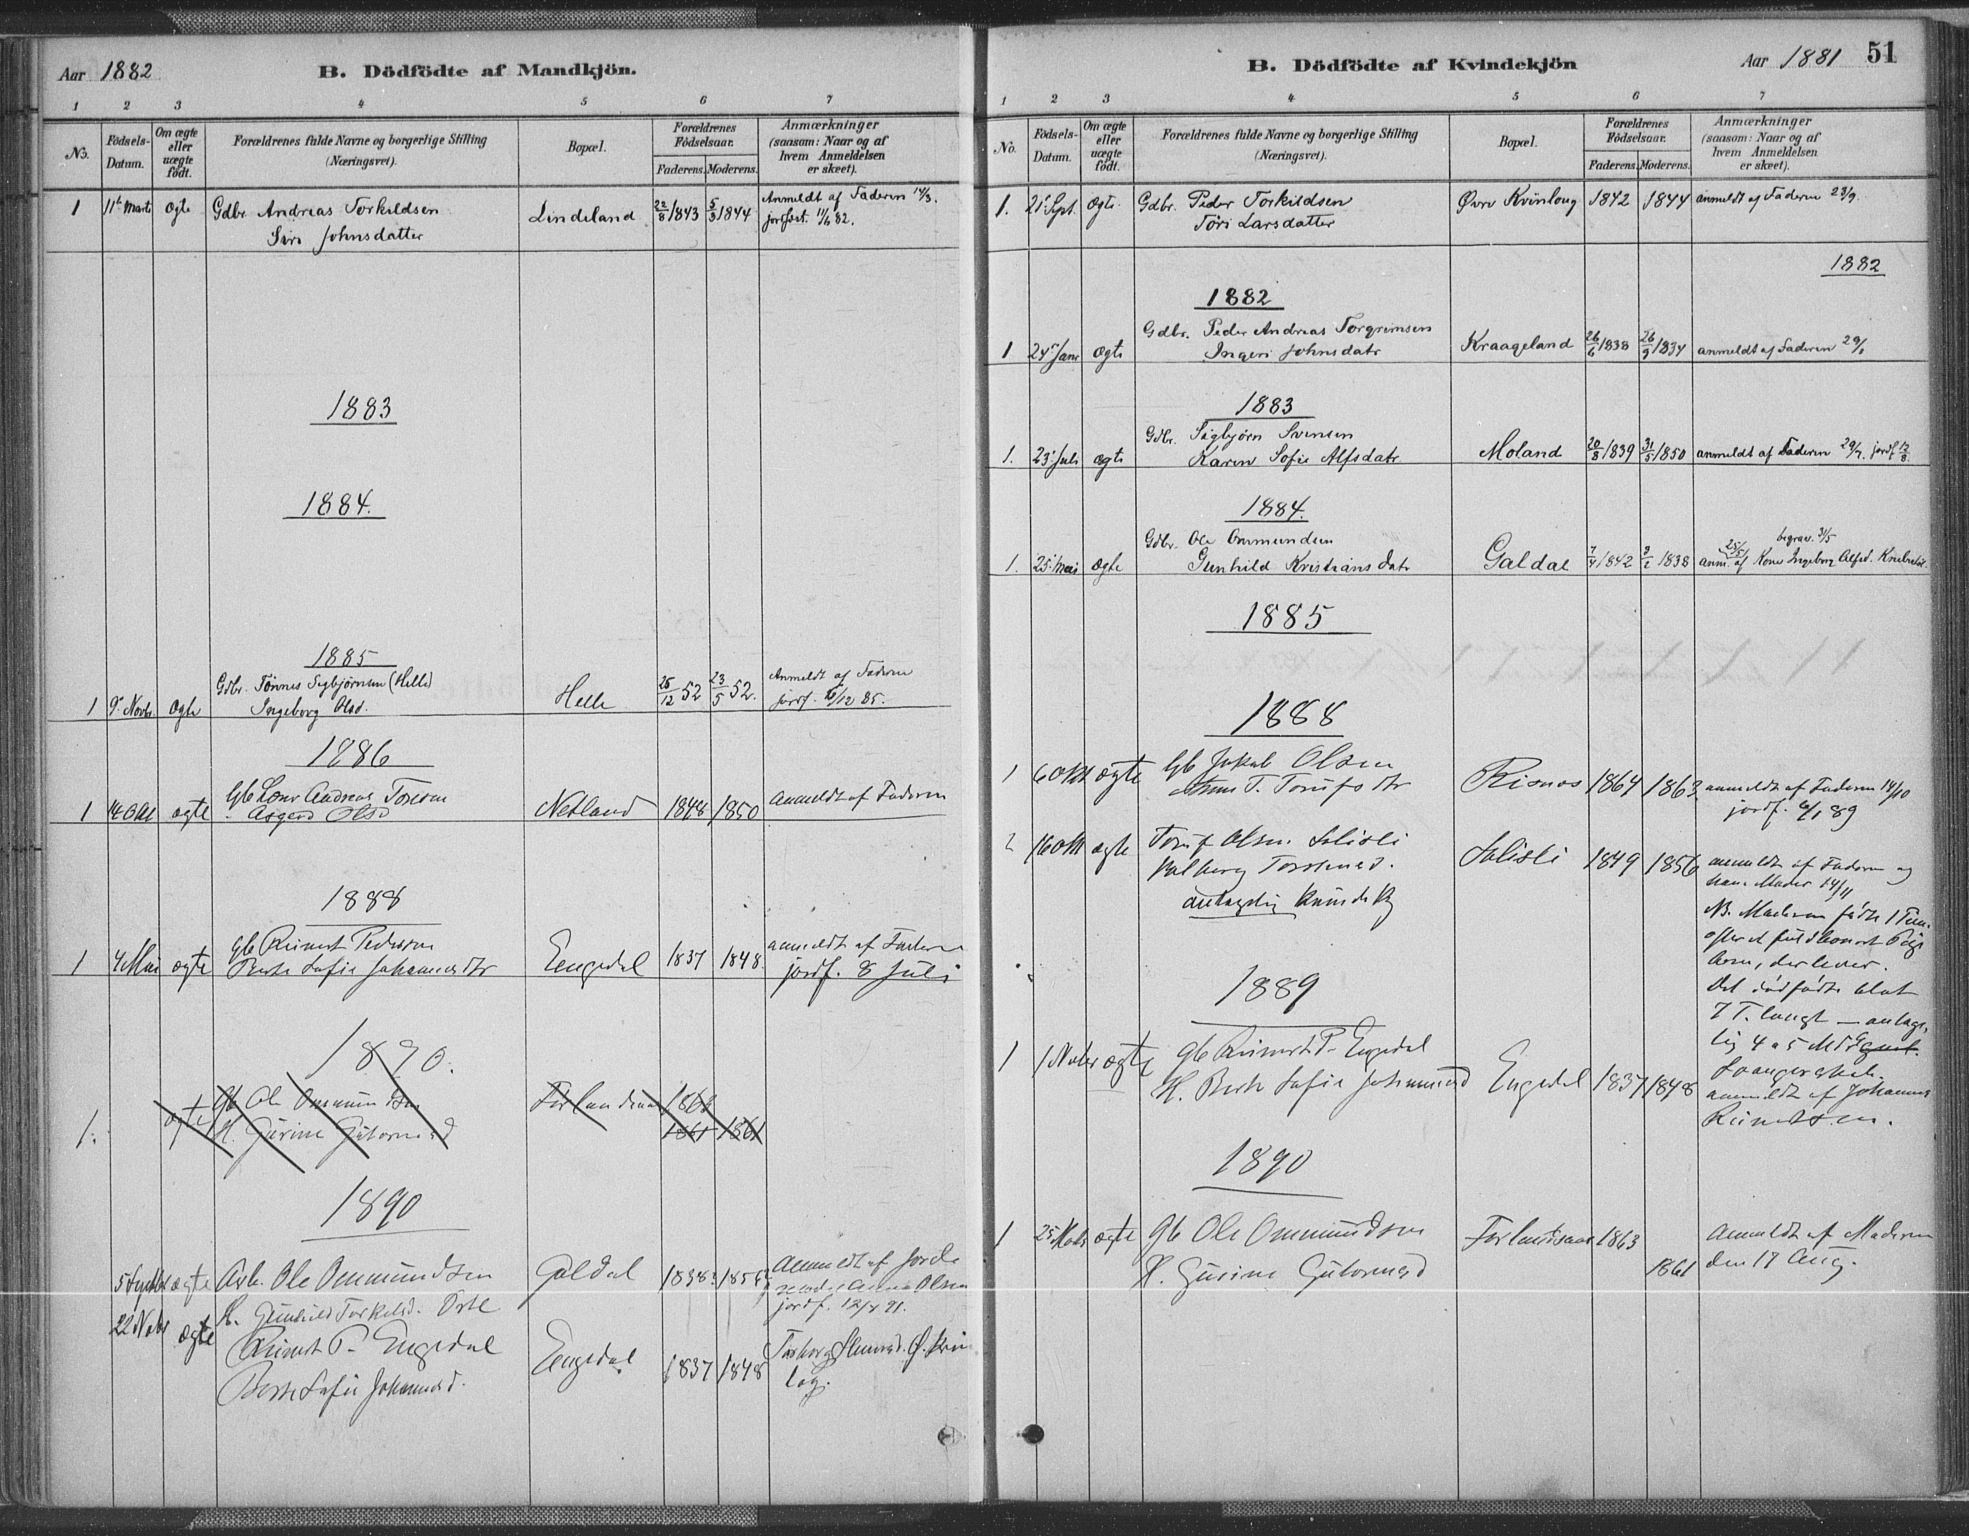 Aar 1882
B. Dödfödte af Mandkjön.
1 2 3 4 5 6 7
No.
Födsels-Datum.
Om ægte eller uægte födt.
Forældrenes fulde Navne og borgerlige Stilling (Næringsvei).
Bopæl.
Forældrenes Födselsaar.
Faderens. Moderens.
Anmærkninger (saasom: Naar og af hvem Anmeldelsen er skeet).
1 11te Marts ægte Gdbr. Andreas Torkildsen Lindeland 22/8 1843 5/3 1844 Anmeldt af Faderen 14/3.
Siri Johnsdatter
1883
1884.
1885
1 9de Novbr ægte Gdbr. Tönnes Sigbjörnsen (Helle) Helle 25/12 52 23/5 52. Anmeldt af Faderen
Ingeborg Olsd. jordf. 12 85.
1886
1 Okt ægte Gb Andreas Netland 1848 1850 Anmeldt af Faderen
Asgerd Olsd
1888
1 4 Mai ægte Gb Reinert Pedersen Engedal 1837 1848 anmeldt af Faderen
Berte Sofie Johannesdtr jordf. 8 Juli
1890.
1. ægte Gb Ole Ommundsen Forlandsaas 1861 1861
H. Gurine Gutormsd
1890
5 Septbr ægte Arb. Ole Ommundsen Galdal 1838 Anmeldt af Jorde
H. Gunhild Torkelsd. moder Anna Olsen
jordf. 91.
22 Novbr ægte Reinert P. Engedal Engedal 1837 1848
Berte Sofie Johannesd.
Aar 1881 51
B. Dödfödte af Kvindekjön
1 2 3 4 5 6 7
No.
Födsels-Datum.
Om ægte eller uægte födt.
Forældrenes fulde Navne og borgerlige Stilling (Næringsvei).
Bopæl.
Forældrenes Födselsaar.
Faderens. Moderens.
Anmærkninger (saasom: Naar og af hvem Anmeldelsen er skeet).
1. 21 Sept. ægte Gdbr. Peder Torkildsen Øvre Kvinlaug 1842 1844 anmeldt af Faderen 23/9.
Töri Larsdatter
1882
1882
1 24 Janr ægte Gdbr. Peder Andreas Torgrimsen Kraageland 26/6 1838 26/9 1834 anmeldt af Faderen 29/1
Ingeri Johnsdatr
1883
1. 23 Juli ægte Gdbr. Sigbjörn Svensen Moland 20/8 1839 31/5 1850 anmeldt af Faderen 29/7. jordf 12/8.
Karen Sofie Alfsdatr
1884.
1. 25 Mai ægte Gdbr. Ole Ommundsen Galdal 7/4 1842 3/2 1838 begrav. 31/5
Gunhild Kristiansdatr anm. 25/5 af Kone Ingeborg Alfsd.
1885
1888
1 6 Okt ægte Gb Jakob Olsen Risnes 1864 1863 anmeldt af Faderen 14/10
Anne T. dtr jordf. 89
2 16 Okt ægte Olsen Solisli Solisli 1849 1856 anmeldt af Faderen og
Valborg Torstensd. hans Moder 14/11
antagelig Kvindekj NB. Moderen födte 1 Time
efter et fuldbaaret Pige
barn, der lever.
Det dödfödte blot
7 T. langt — antage-
lig 4 a 5 Mdrs
Svangerskab.
1889
1 1 Novbr ægte Gb Reinert P. Engedal Engedal 1837 1848 anmeldt af Johannes
H. Berte Sofie Johannesd Reinertsen.
1890
1 25 ægte Gb Ole Ommundsen Forlandsaas 1863 Anmeldt af Moderen
H. Gurine Gutormsd 1861 den 17 Aug.